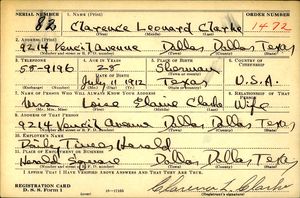 SERIAL NUMBER 1. NAME (Print) ORDER NUMBER
Clarence Leonard Clarke 1472
2. ADDRESS (Print)
9214 Avenue Dallas Dallas Texas
3. TELEPHONE 4. AGE IN YEARS 5. PLACE OF BIRTH 6. COUNTRY OF CITIZENSHIP
58-9196 28 Sherman
DATE OF BIRTH
July 11 1912 Texas U.S.A.
7. NAME OF PERSON WHO WILL ALWAYS KNOW YOUR ADDRESS 8. RELATIONSHIP OF THAT PERSON
Mrs Loice Elaine Clarke Wife
9. ADDRESS OF THAT PERSON
9214 Avenue Dallas, Dallas, Texas
10. EMPLOYER'S NAME
Daily Times Herald
11. PLACE OF EMPLOYMENT OR BUSINESS
Herald Square Dallas Dallas Texas
I AFFIRM THAT I HAVE VERIFIED ABOVE ANSWERS AND THAT THEY ARE TRUE.
REGISTRATION CARD
D. S. S. Form 1 Clarence L. Clarke